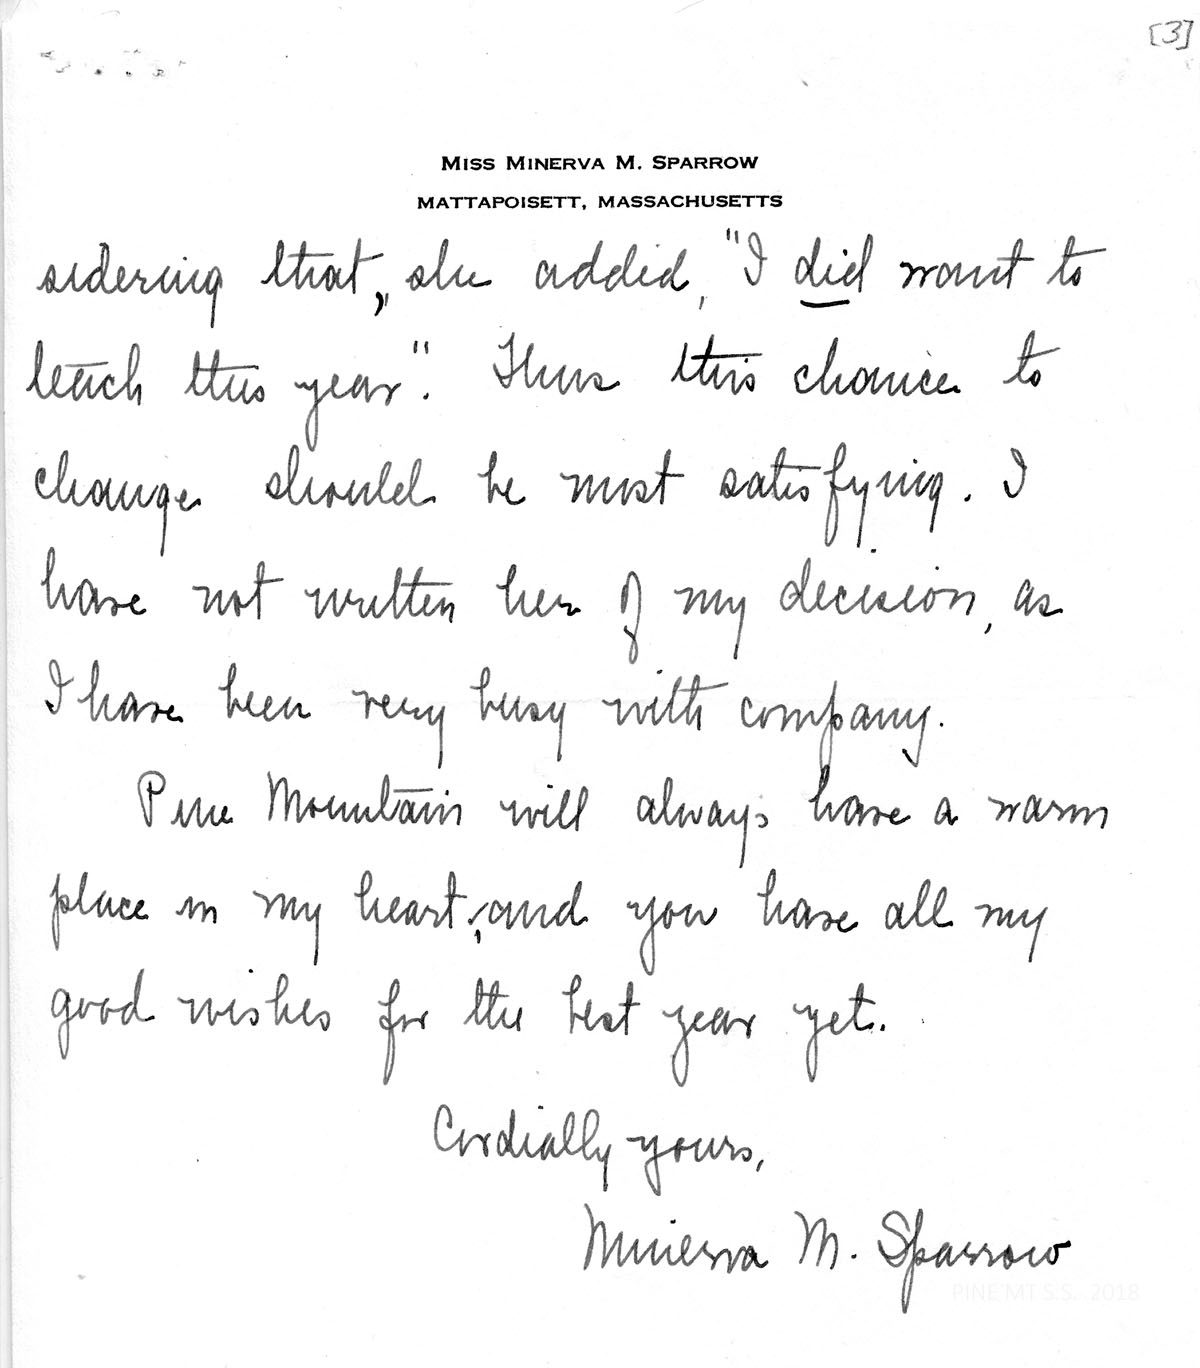 [3]
MISS MINERVA M. SPARROW
MATTAPOISETT, MASSACHUSETTS
sidering that," she added, "I did want to
teach this year". Thus this chance to
change should be most satisfying. I
have not written her of my decision, as
I have been very busy with company.
Pine Mountain will always have a warm
place in my heart, and you have all my
good wishes for the best year yet.
Cordially yours,
Minerva M. Sparrow
PINE MT S.S. 2018